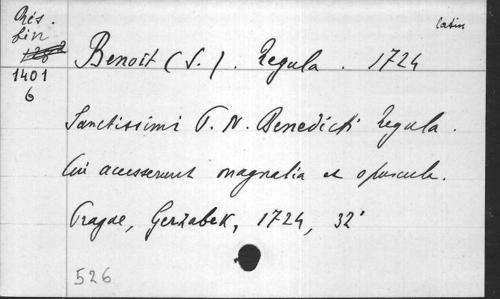 Rés.
Lin
latin
Benoit (S.). Regula. 1724
1401
6
Sanctissimi P. N. Benedicti Regula.
Cui accesserunt magnalia et opuscula.
Pragae, Gerzabek, 1724, 32°
526